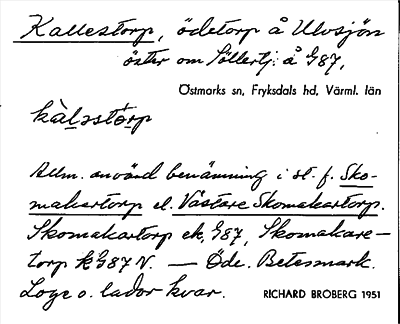 Kallestorp, ödetorp å Ulvsjön
öster om Söllertj. å G87,
Östmarks sn, Fryksdals hd, Värml. län
kàlsstòrp
Allm. använd benämning i st. f. Sko-
makartorp el. Västare Skomakartorp.
Skomakartorp ek, G87, Skomakare-
torp kG87 V. — Öde. Betesmark.
Loge o. lador kvar. RICHARD BROBERG 1951